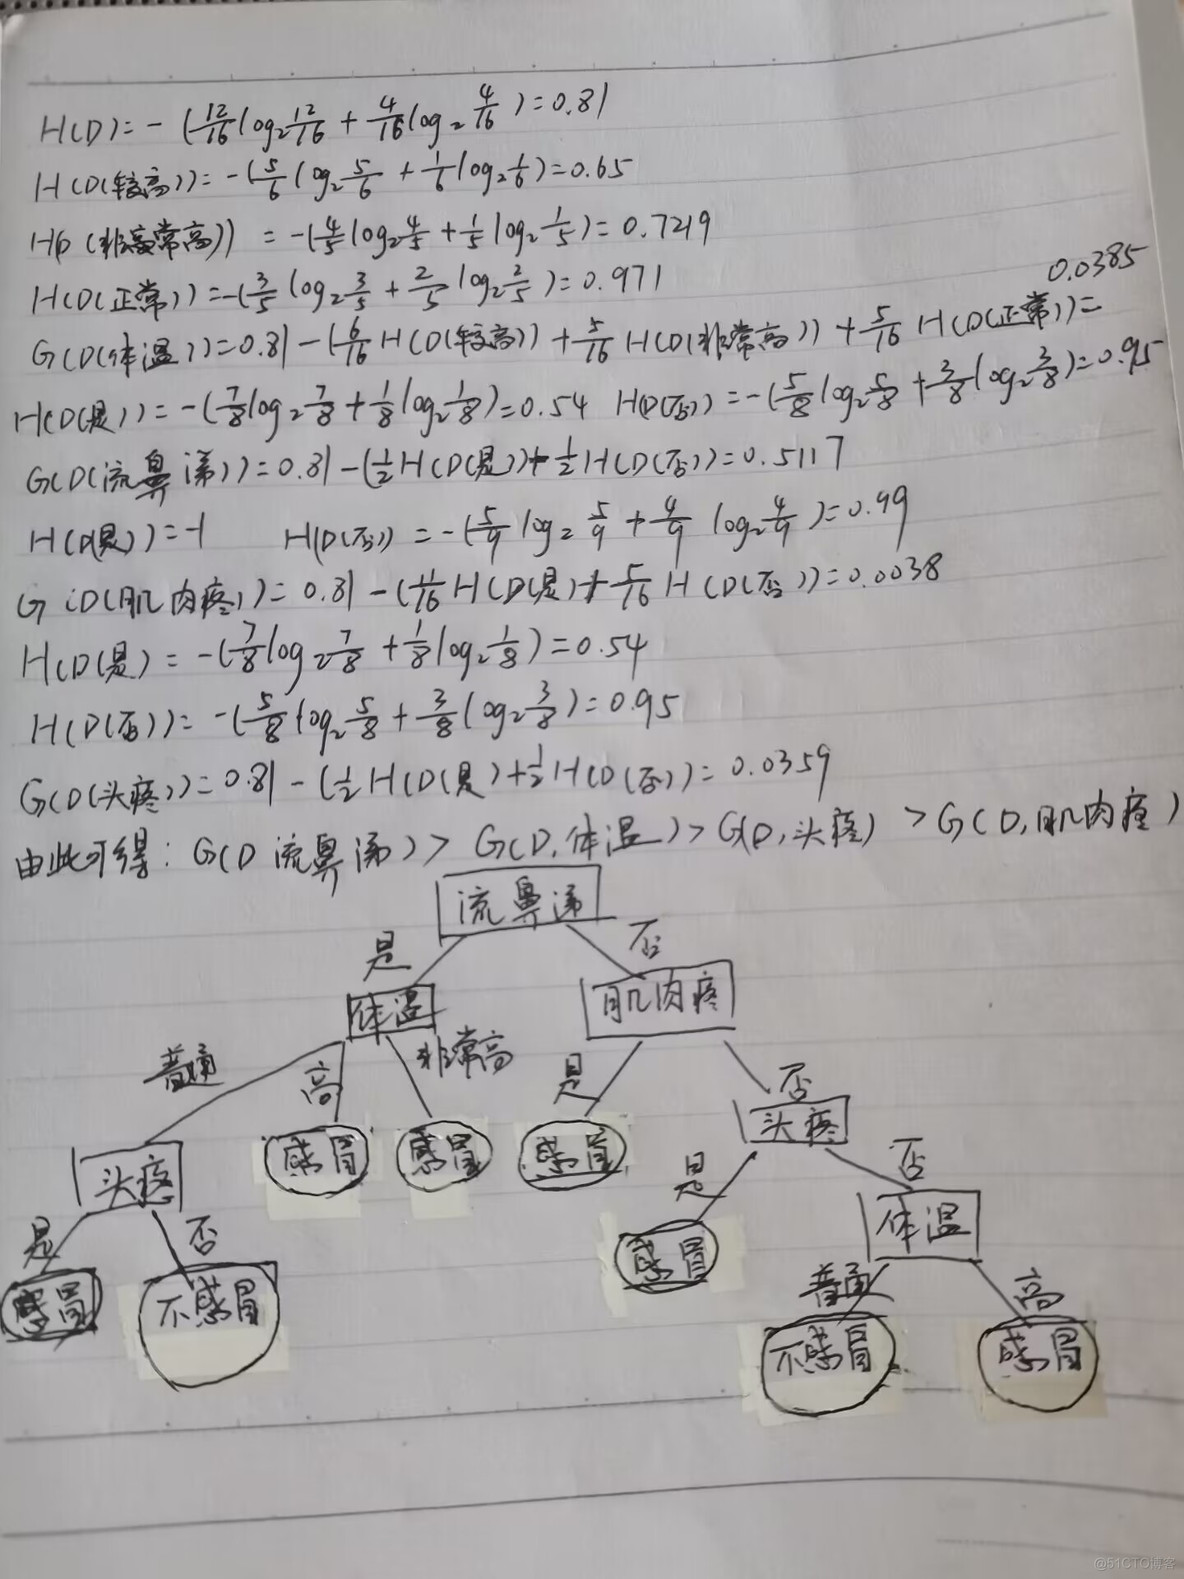 H(D)=-(12/16log₂12/16+4/16log₂4/16)=0.81
H(D(较高))=-(5/6log₂5/6+1/6log₂1/6)=0.65
H(D(非常高))=-(4/5log₂4/5+1/5log₂1/5)=0.7219
H(D(正常))=-(3/5log₂3/5+2/5log₂2/5)=0.971
0.0385
G(D(体温))=0.81-(6/16H(D(较高))+5/16H(D(非常高))+5/16H(D(正常))=
H(D(是))=-(7/8log₂7/8+1/8log₂1/8)=0.54 H(D(否))=-(5/8log₂5/8+3/8log₂3/8)=0.95
G(D(流鼻涕))=0.81-(1/2H(D(是))+1/2H(D(否))=0.5117
H(D(是))=-1 H(D(否))=-(5/9log₂5/9+4/9log₂4/9)=0.99
G(D(肌肉疼))=0.81-(11/16H(D(是)+5/16H(D(否))=0.0038
H(D(是)=-(7/8log₂7/8+1/8log₂1/8)=0.54
H(D(否))=-(5/8log₂5/8+3/8log₂3/8)=0.95
G(D(头疼))=0.81-(1/2H(D(是)+1/2H(D(否))=0.0359
由此可得:G(D流鼻涕)>G(D,体温)>G(D,头疼)>G(D,肌肉疼)
流鼻涕
是 否
体温 肌肉疼
普通 高 非常高 是 否
头疼 感冒 感冒 感冒 头疼
是 否 是 否
感冒 不感冒 感冒 体温
普通 高
不感冒 感冒
@51CTO博客